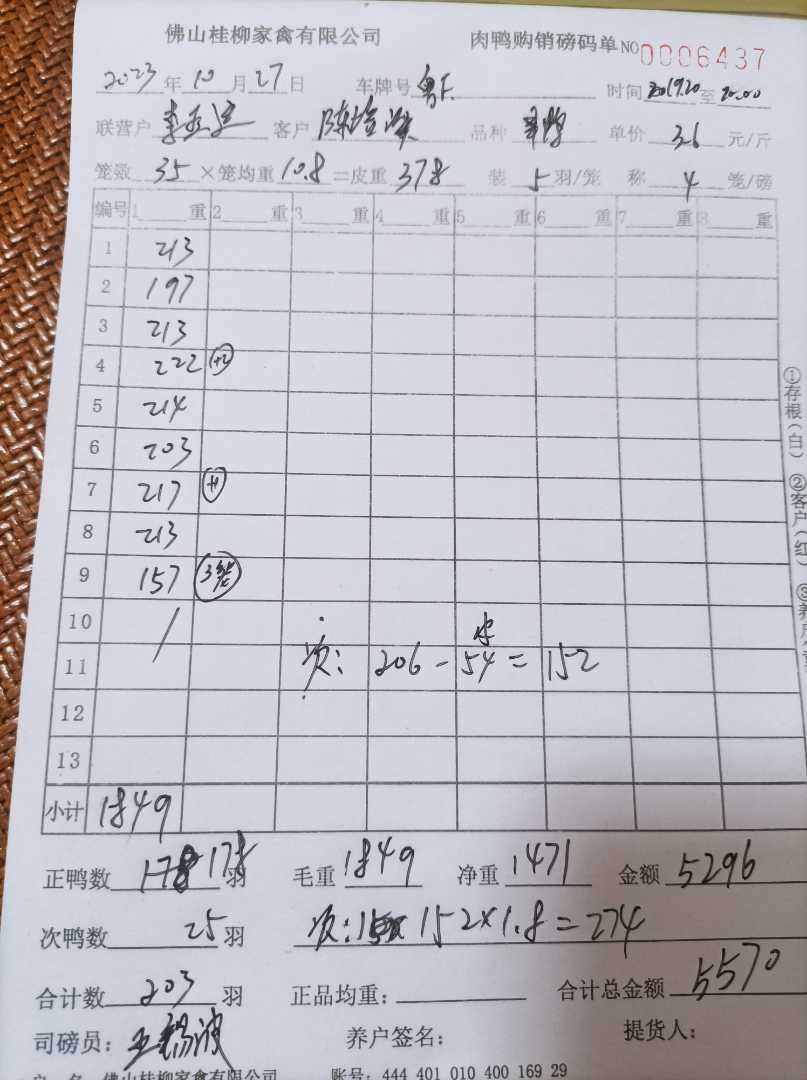 佛山桂柳家禽有限公司 肉鸭购销磅码单 NO 0006437
2023年10月27日 车牌号 粤F. 时间 19.20 至 20.00
联营户 李 客户 陈 品种 单价 3.6 元/斤
笼数 35 ×笼均重 10.8 =皮重 378 装 5 羽/笼 称 4 笼/磅
编号 1 重 2 重 3 重 4 重 5 重 6 重 7 重 8 重
1 213
2 197
3 213
4 222 +2
5 214
6 203
7 217 +1
8 213
9 157 3笼
10 /
11 次: 206 - 54 = 152
12
13
小计 1849
正鸭数 178 178 羽 毛重 1849 净重 1471 金额 5296
次鸭数 25 羽 次: 152×1.8=274
合计数 203 羽 正品均重: 合计总金额 5570
司磅员: 王 波 养户签名: 提货人:
户 名 佛山桂柳家禽有限公司 账号: 444 401 010 400 169 29
①存根(白) ②客户(红) ③养户